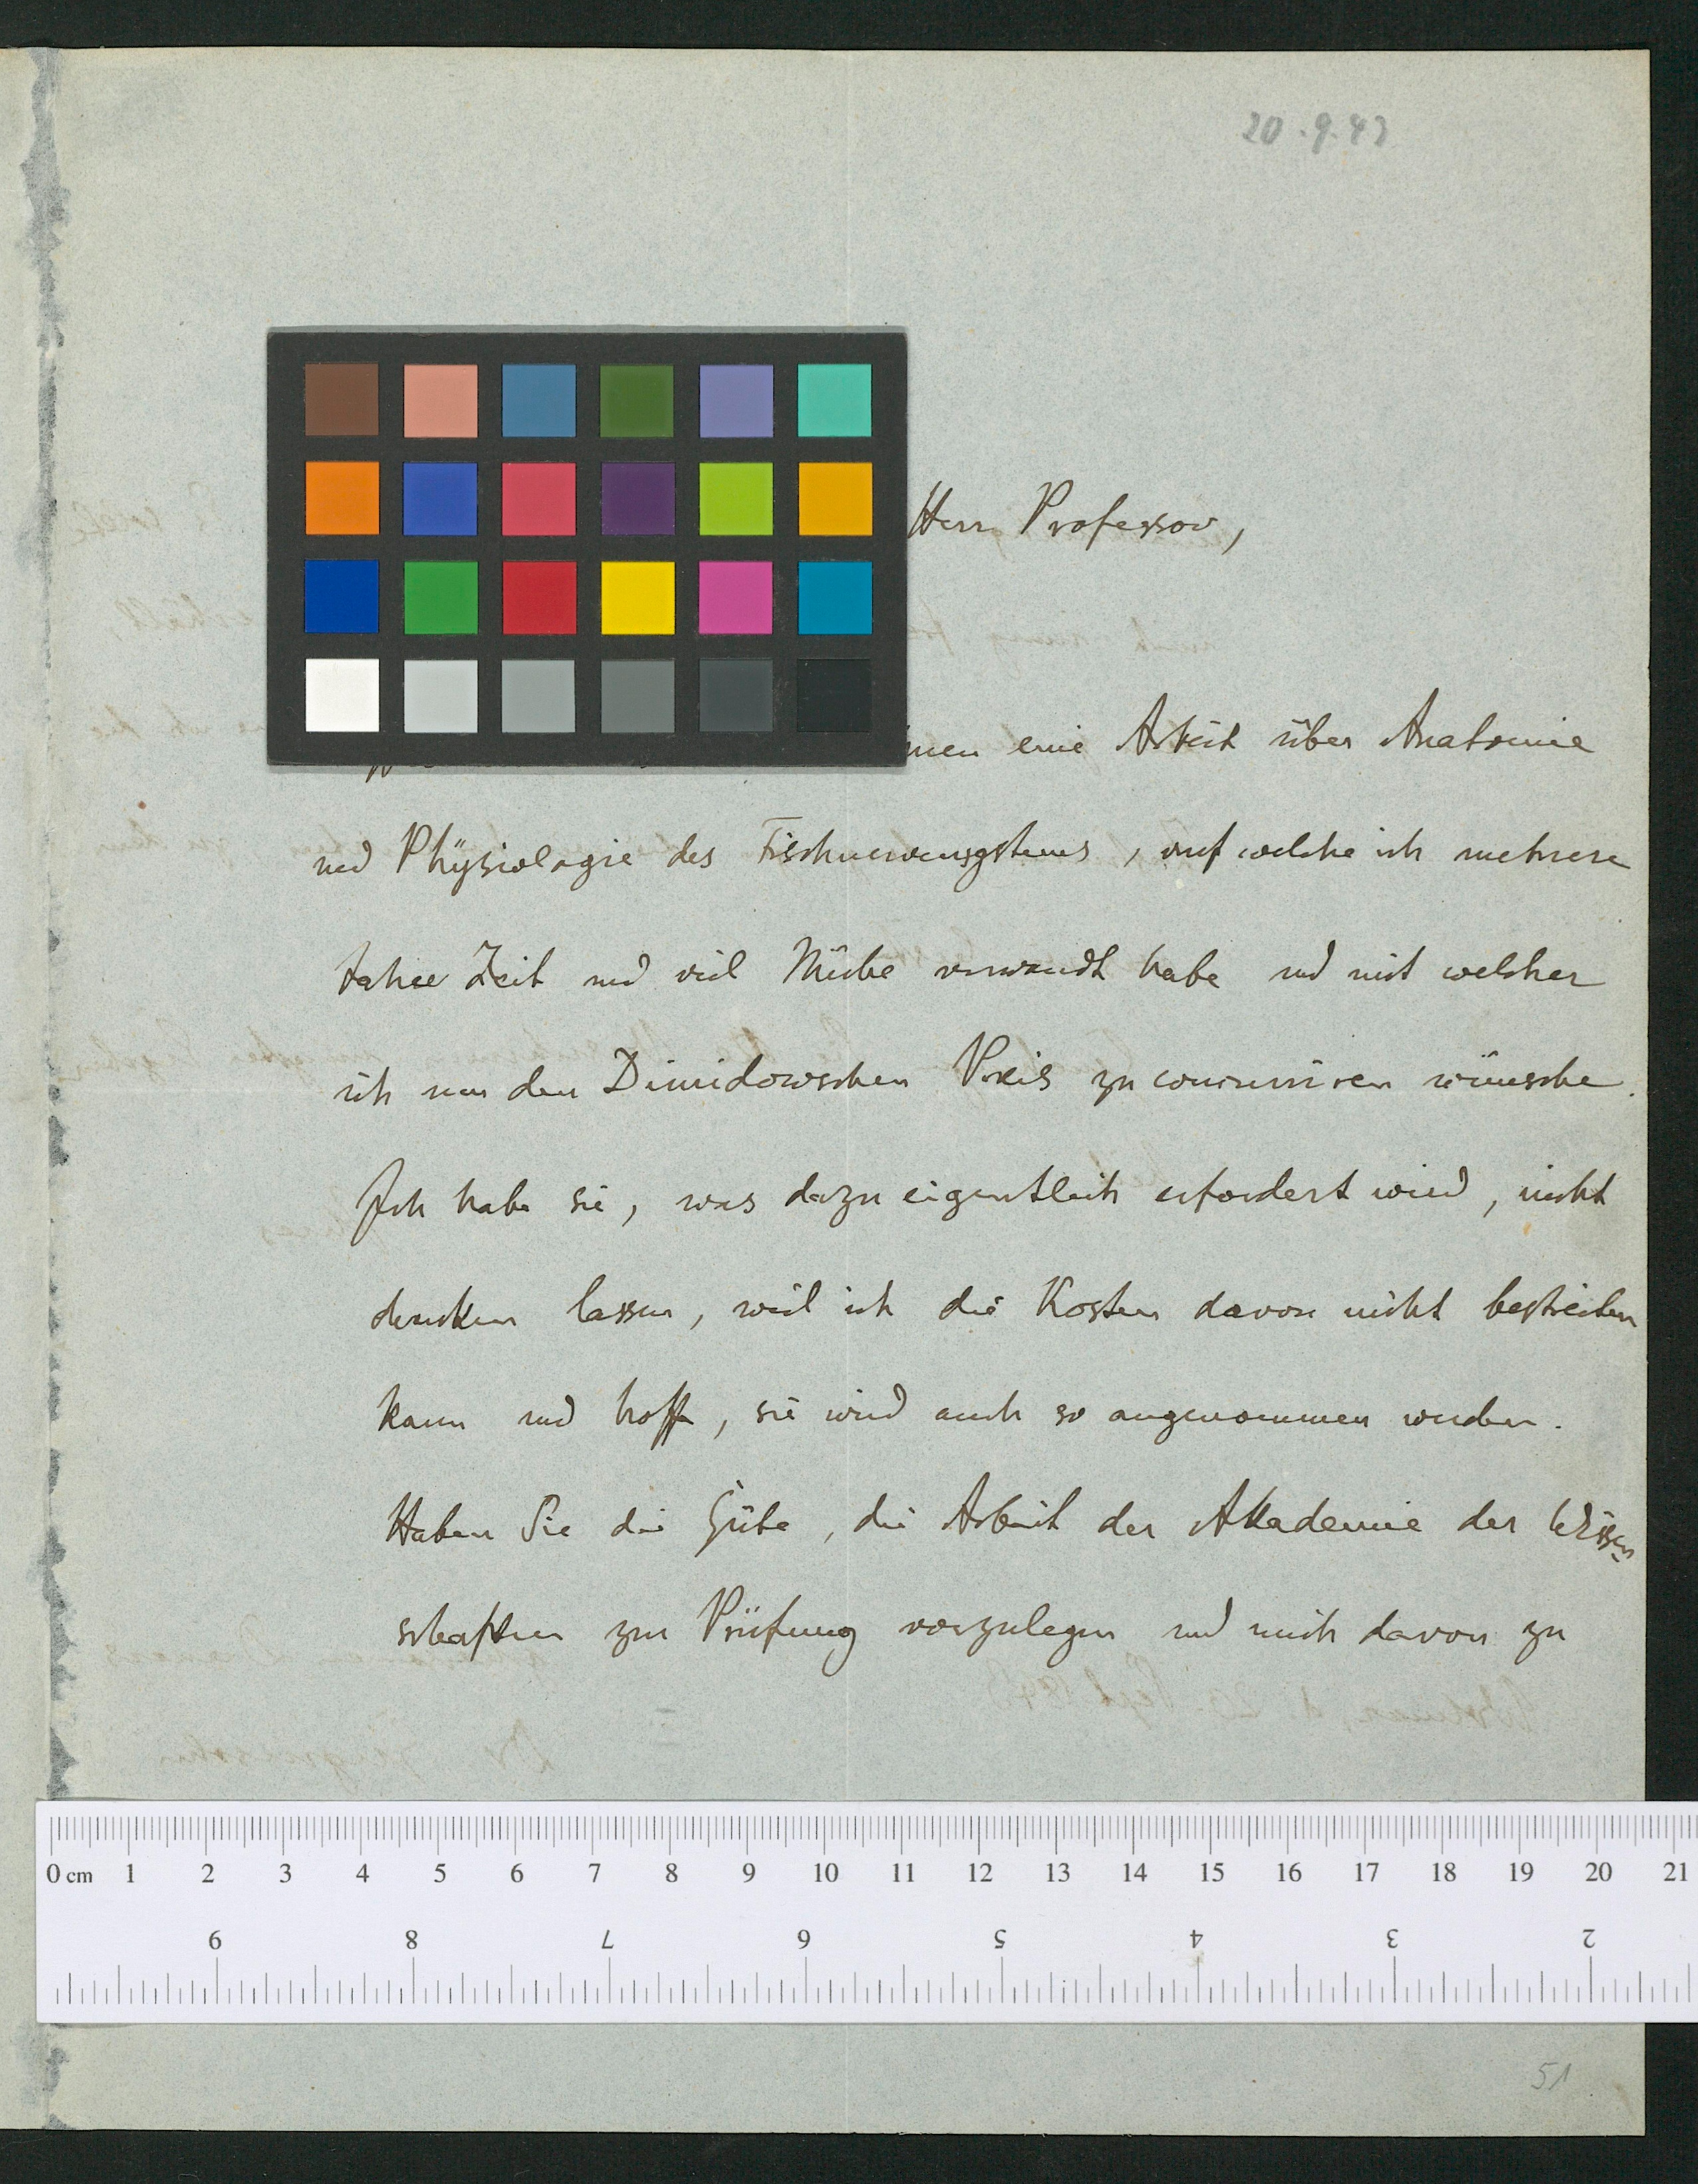 20.9.43
Herr Professor,
eine Arbeit über Anatomie
und Physiologie des Fischnervensystems, auf welche ich mehrere
Jahre Zeit und viel Mühe verwandt habe und mit welcher
ich um den Dimidowschen Preis zu concurriren wünsche.
Ich habe sie, was dazu eigentlich erfordert wird, nicht
drucken lassen, weil ich die Kosten davon nicht bestreiten
kann und hoffe, sie wird auch so angenommen werden.
Haben Sie die Güte, die Arbeit der Akademie der Wissen-
schaften zur Prüfung vorzulegen und mich davon zu
0 cm 1 2 3 4 5 6 7 8 9 10 11 12 13 14 15 16 17 18 19 20 21
9 8 7 6 5 4 3 2
51